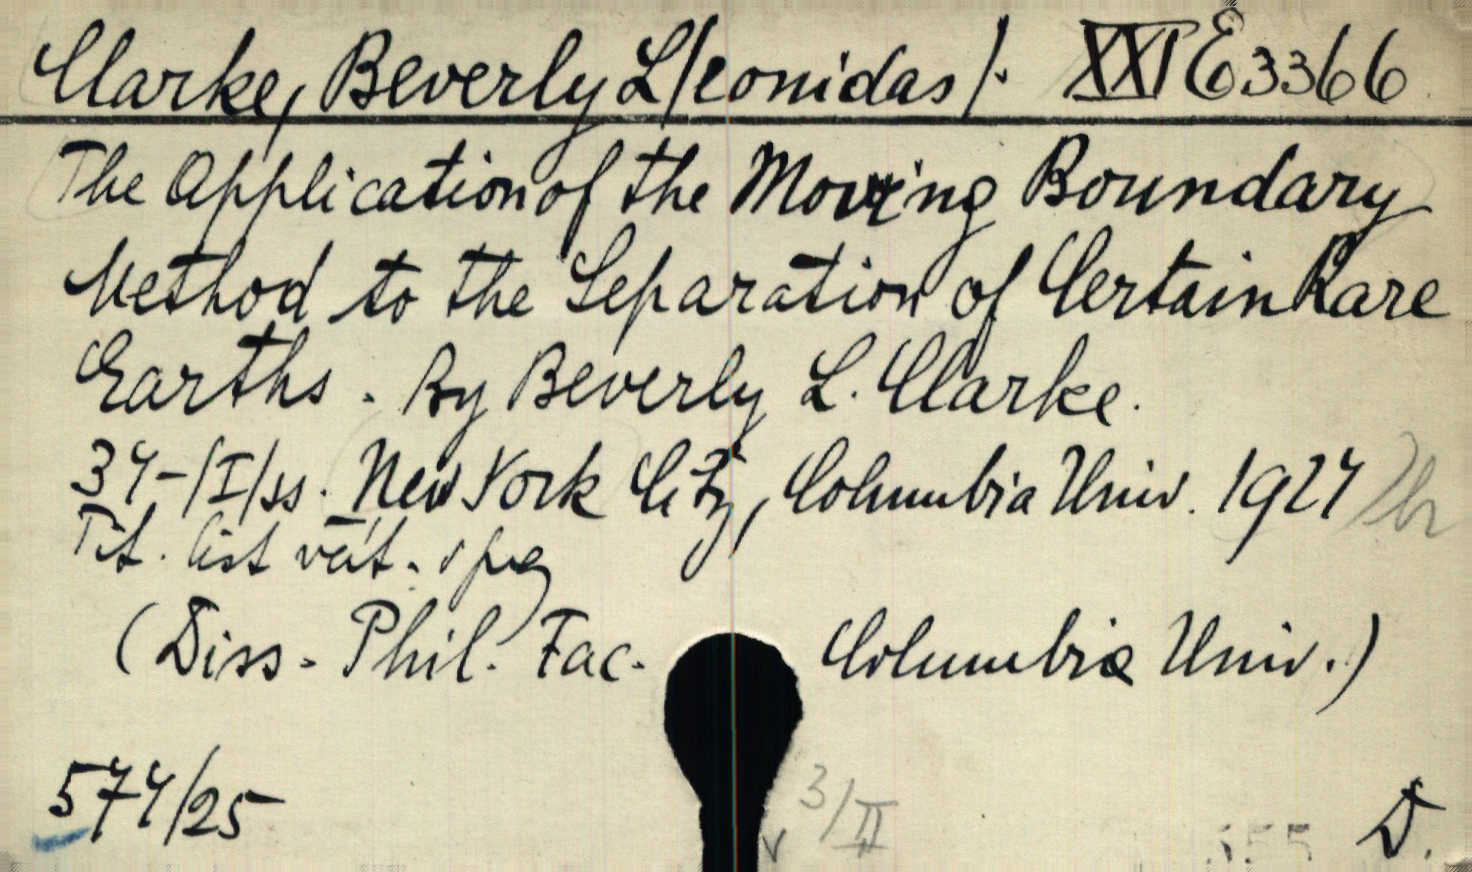 Clarke, Beverly L/eonidas/. XXI E 3366
The Application of the Moving Boundary
Method to the Separation of Certain Rare
Earths. By Beverly L. Clarke.
34-/I/ss. New York City, Columbia Univ. 1924
Tit.
(Diss. Phil. Fac. Columbia Univ.)
574/25
3/II
D.